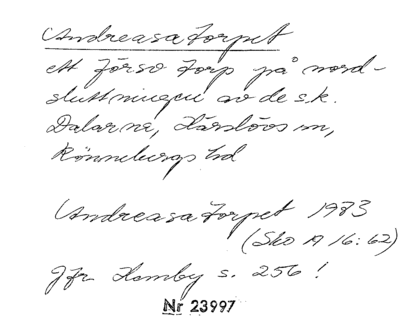 Andreasatorpet
ett förso torp på nord-
sluttningen av de s.k.
Dalarne, Härslövs sn,
Rönnebergs hd
Andreasatorpet 1983
(Sko A 16:62)
Jfr Hamby s. 256 !
Nr 23997